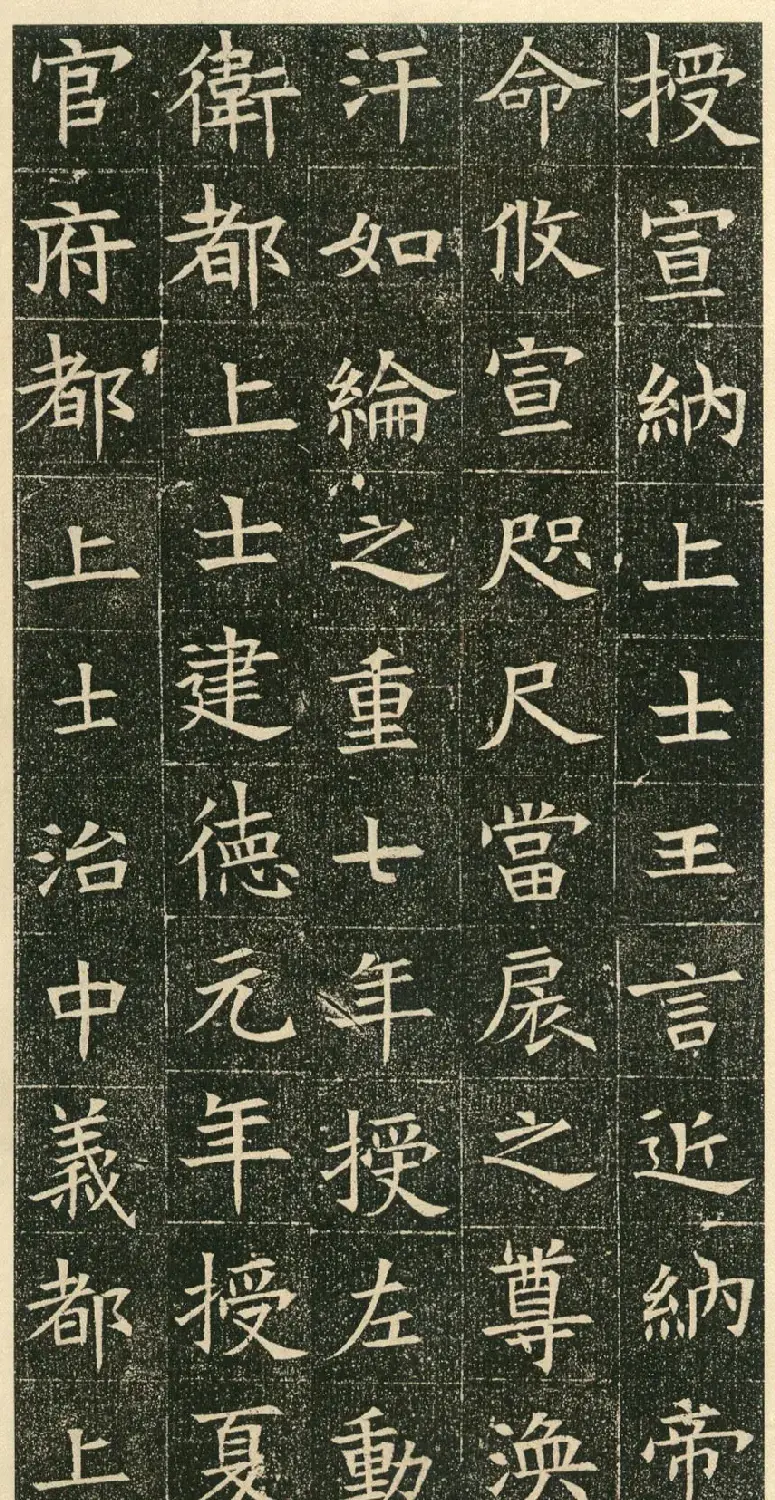 授宣納上士王言近納帝
命攸宣咫尺當扆之尊渙
汗如綸之重七年授左勲
衛都上士建徳元年授夏
官府都上士治中義都上